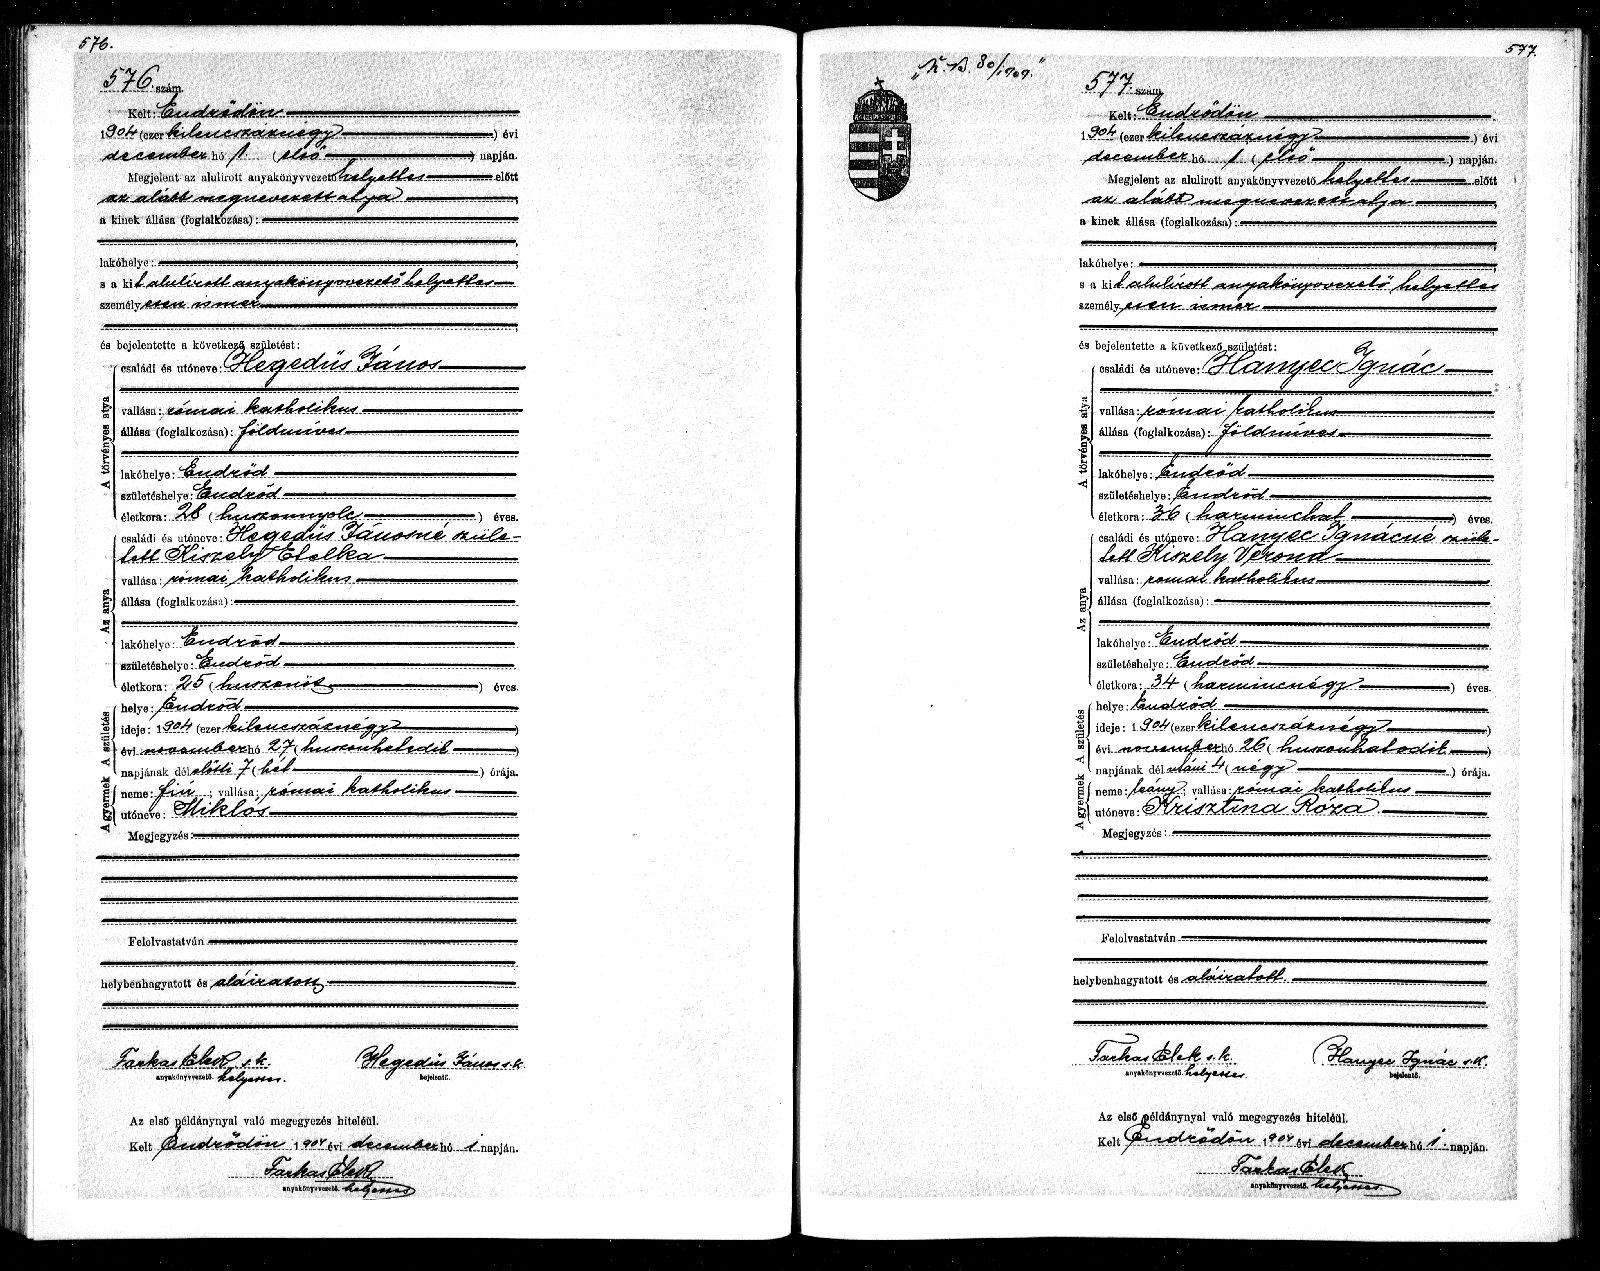 576.
576. szám.
Kelt: Endrődön
1904 (ezer kilencszáznégy) évi
december hó 1. (első) napján.
Megjelent az alulirott anyakönyvvezető helyettes előtt
az alább megnevezett atya
a kinek állása (foglalkozása):
lakóhelye:
s a kit alulírott anyakönyvvezető helyettes
személyesen ismer
és bejelentette a következő születést:
A törvényes atya
családi és utóneve: Hegedüs János
vallása: római katholikus
állása (foglalkozása): földmíves
lakóhelye: Endrőd
születéshelye: Endrőd
életkora: 28 (huszonnyolc) éves.
Az anya
családi és utóneve: Hegedüs Jánosné szüle-
tett Kiszely Etelka
vallása: római katholikus
állása (foglalkozása):
lakóhelye: Endrőd
születéshelye: Endrőd
életkora: 25 (huszonöt) éves.
A születés
helye: Endrőd
ideje: 1904 (ezer kilencszáznégy)
évi november hó 27 (huszonhetedik)
napjának dél előtti 7 (hét) órája.
A gyermek
neme: fiú; vallása: római katholikus
utóneve: Miklós
Megjegyzés:
Felolvastatván
helybenhagyatott és aláiratott
Farkas Elek s.k. Hegedüs János s.k.
anyakönyvvezető. helyettes. bejelentő.
Az első példánynyal való megegyezés hiteléül.
Kelt Endrődön 1904 évi december hó 1 napján.
Farkas Elek
anyakönyvvezető. helyettes
577.
"K.B. 80/1909."
577. szám.
Kelt: Endrődön
1904 (ezer kilencszáznégy) évi
december hó 1 (első) napján.
Megjelent az alulirott anyakönyvvezető helyettes előtt
az alább megnevezett atya
a kinek állása (foglalkozása):
lakóhelye:
s a kit alulírott anyakönyvvezető helyettes
személyesen ismer
és bejelentette a következő születést:
A törvényes atya
családi és utóneve: Hanyec Ignác
vallása: római katholikus
állása (foglalkozása): földmíves
lakóhelye: Endrőd
születéshelye: Endrőd
életkora: 36 (harminchat) éves.
Az anya
családi és utóneve: Hanyec Ignácné szüle-
tett Kiszely Verona
vallása: római katholikus
állása (foglalkozása):
lakóhelye: Endrőd
születéshelye: Endrőd
életkora: 34 (harmincnégy) éves.
A születés
helye: Endrőd
ideje: 1904 (ezer kilencszáznégy)
évi november hó 26 (huszonhatodik)
napjának dél utáni 4 (négy) órája.
A gyermek
neme: leány; vallása: római katholikus
utóneve: Krisztina Roza
Megjegyzés:
Felolvastatván
helybenhagyatott és aláiratott.
Farkas Elek s.k. Hanyec Ignác s.k.
anyakönyvvezető. helyettes bejelentő.
Az első példánynyal való megegyezés hiteléül.
Kelt Endrődön 1904 évi december hó 1. napján.
Farkas Elek
anyakönyvvezető. helyettes